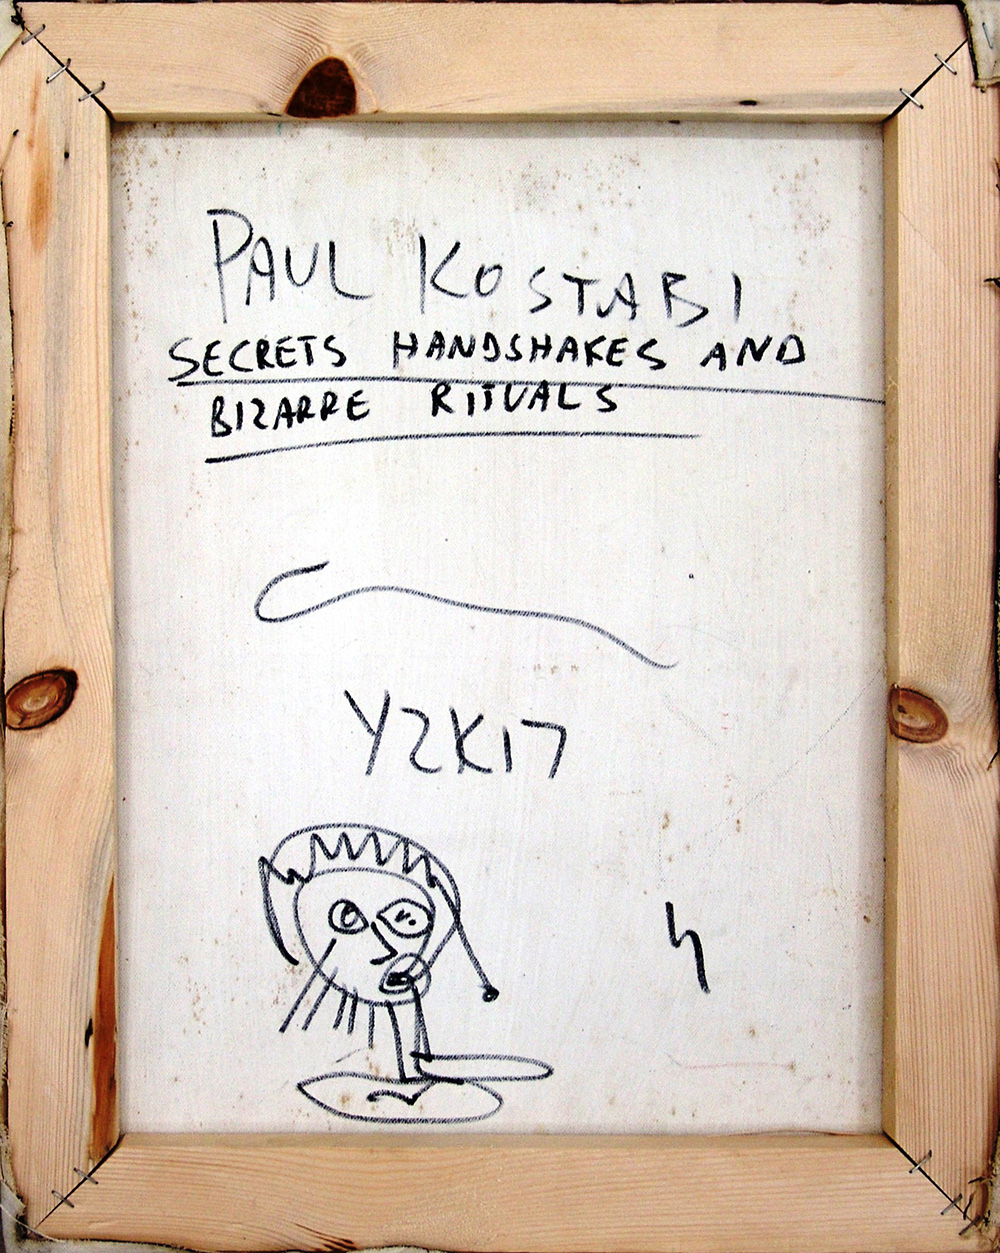 PAUL KOSTABI
SECRETS HANDSHAKES AND
BIZARRE RITUALS
Y2K17